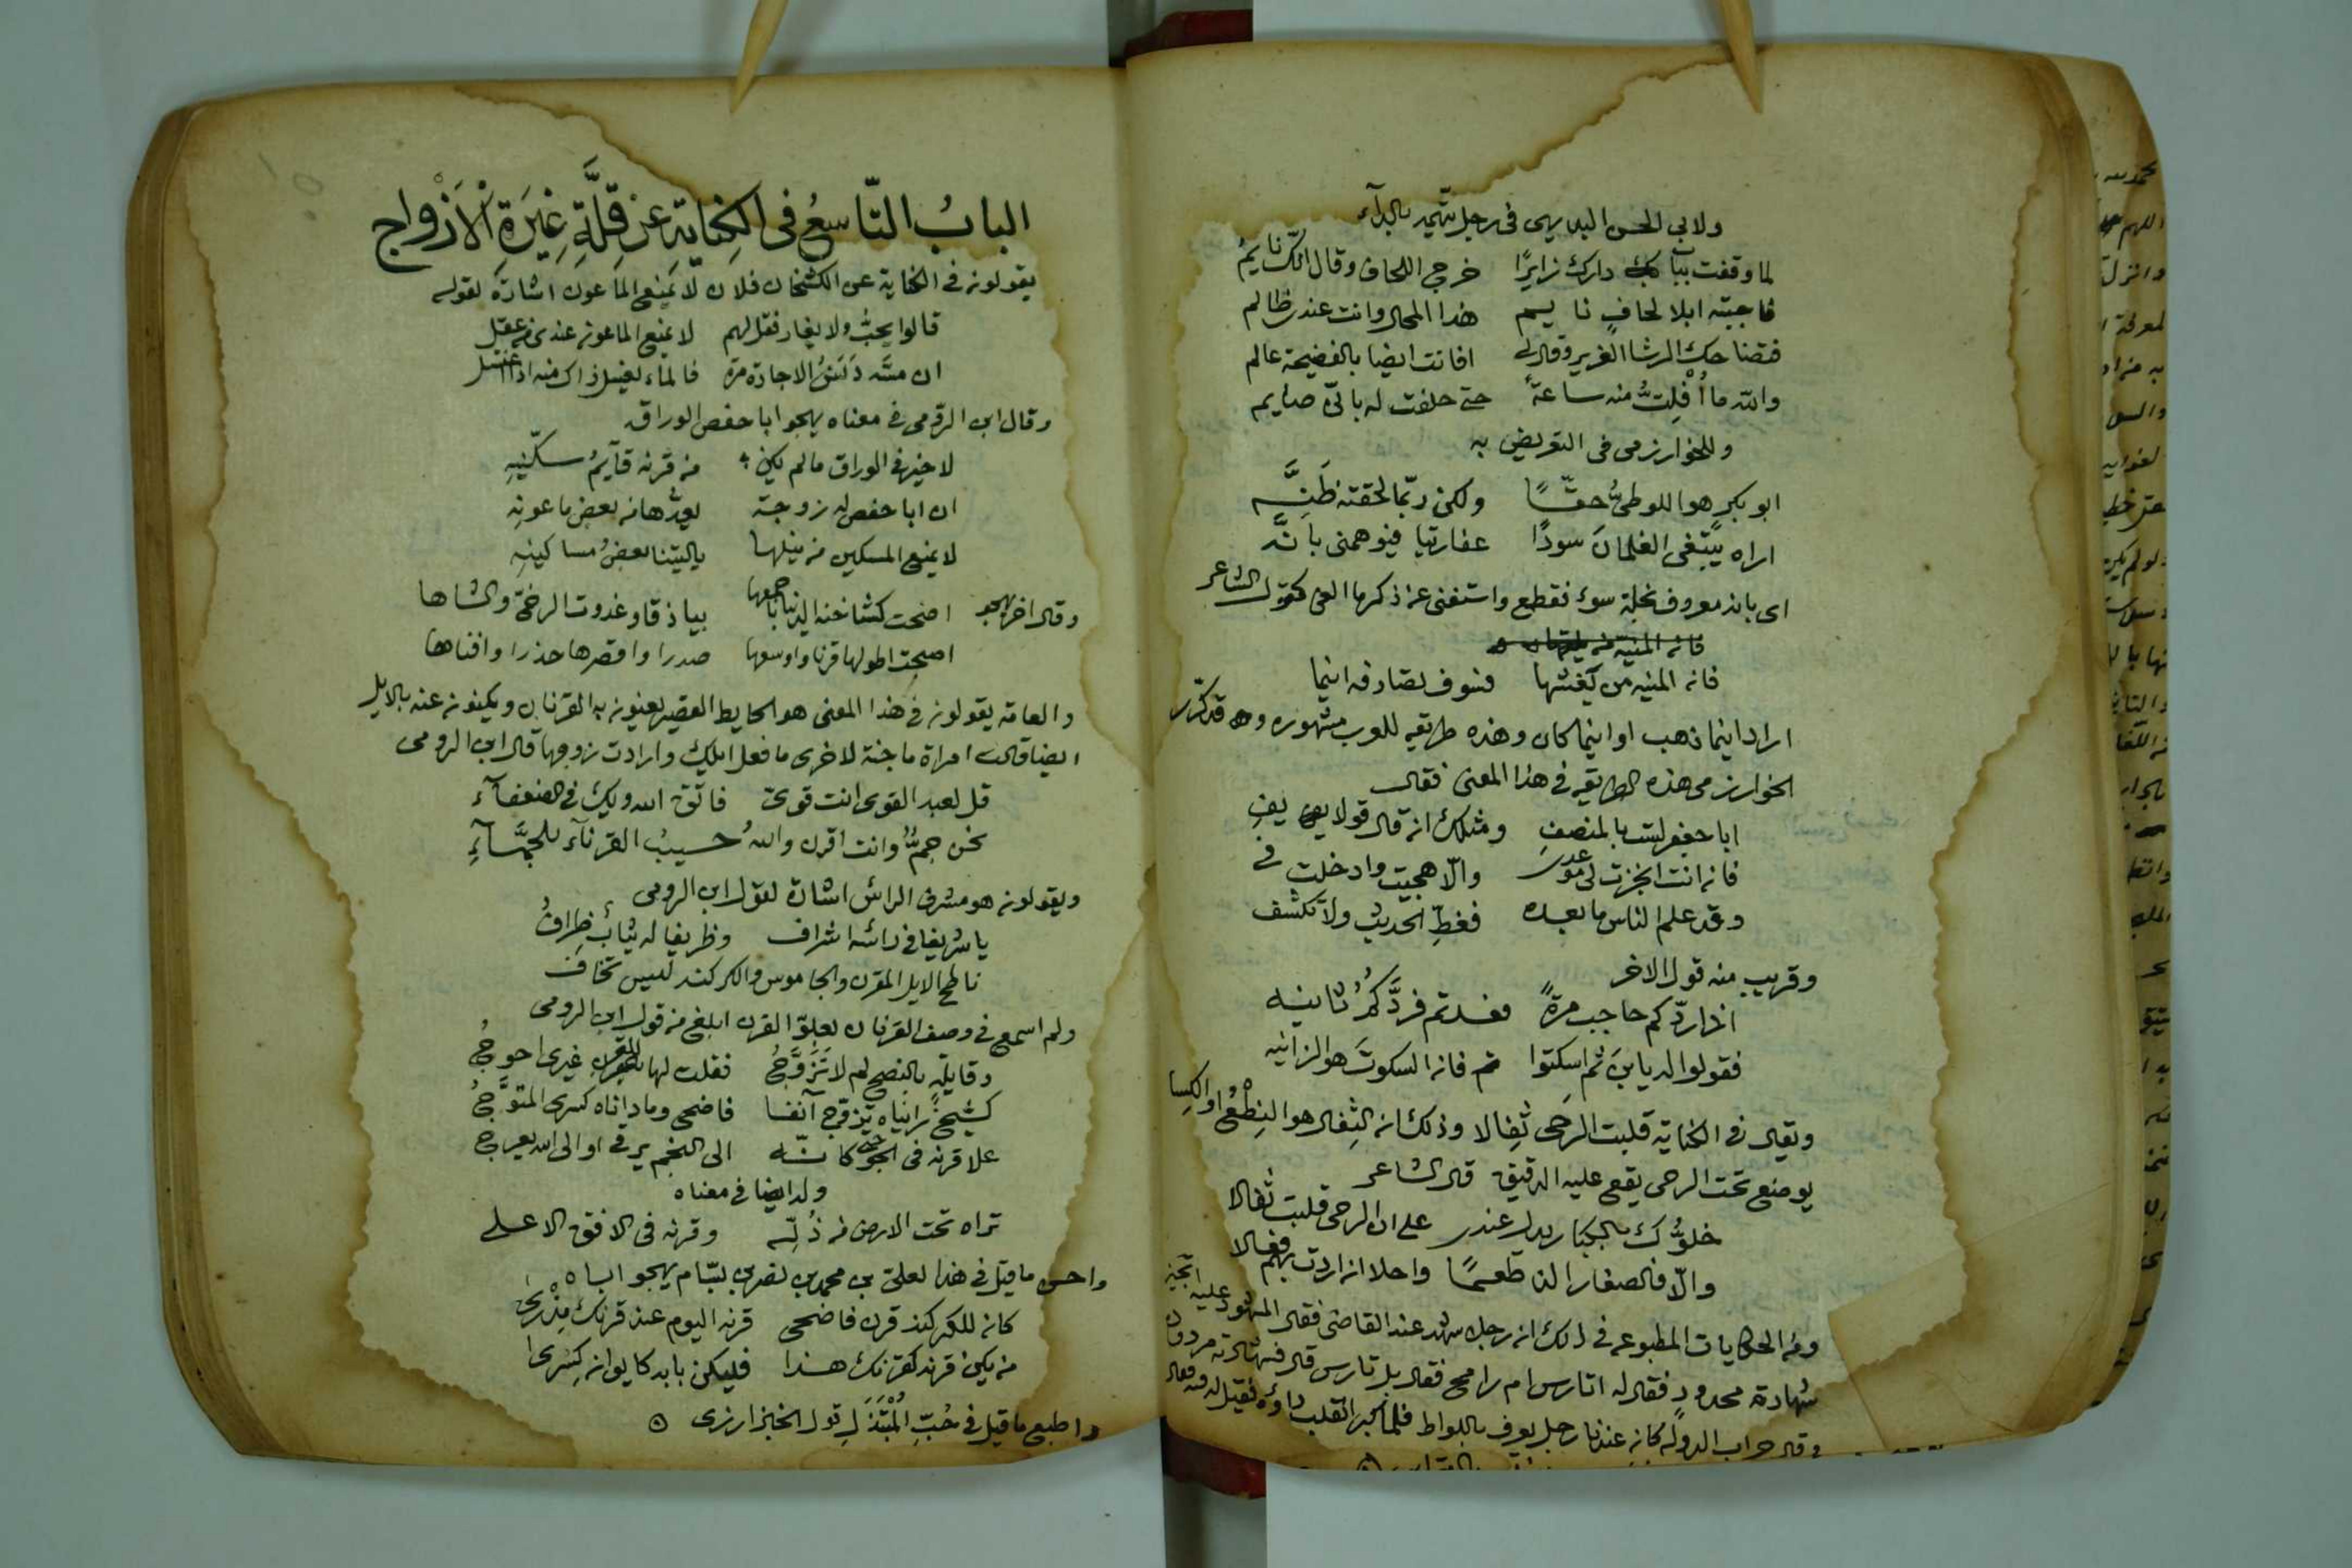 ولابي الحسن البديهي في رجل يتهم بالدآء
لما وقفت بباب دارك زايرًا خرج اللحاف وقال انك نايمُ
فاجبته ابلا لحافٍ نايم هذا المحال وانت عندى ظالم
فتضاحك الرشا الغرير وقال لى افانت ايضا بالفضيحة عالم
والله ما اُفْلِتُّ منه ساعةً حتى حلفت له بانّى صايم
وللخوارزمى فى التعريض به
ابو بكرٍ هو اللوطىُّ حقًّا ولكن ربّما لحقته ظَنَّه
اراه يبتغى الغلمانَ سودًا عفارتيا فيوهمنى بانَّه
اى بانه معروف بخلة سوء فقطع واستغنى عن ذكرها العى كقول الشاعر
فانه المنية من
فانه المنيه من يخشها فسوف تصادفه اينما
اراد اينما ذهب او اينما كان وهذه طريقه للعرب مشهوره وقد كرّر
الخوارزمى هذه الطريقه فى هذا المعنى فقال
ابا جعفر لست بالمنصفِ ومثلك ان قال قولا يفِ
فان انت انجزت لى موعدى والّا هجيت وادخلت فى
وقد علم الناس ما بعده فغطِّ الحديث ولا تكشف
وقريب منه قول الاخر
اذا ردّكم حاجب مرةً فعدتم فردَّكمُ ثانيه
فقولوا له يابنَ ثم اسكتوا فان السكوتَ هو الزانيه
ويقال فى الكناية قلبت الرحى ثِفالا وذلك ان الثِفال هو النِطْعُ او الكسا
يوضع تحت الرحى يقع عليه الدقيق قال الشاعر
خلوُّك بالكبار يدل عندى على ان الرحى قلبت ثفالا
والّا فالصغار الذ طعمًا واحلا ان اردت بهم فعالا
ومن الحكايات المطبوعه فى ذلك ان رجل شهد عند القاضى فقال المشهود عليه اتجيز
شهادة محدودٍ فقال له اتارس ام رامح فقال بل تارس قال فشهادته مردودة
وقال جراب الدولة كان عندنا رجل يعرف باللواط فلما كبر انقلب داؤه فقيل له فيه فقال
البابُ التّاسِعُ فى الكِنايَةِ عن قِلَّةِ غِيَرةِ الْاَزْواج
يقولون فى الكناية عن الكشخان فلان لا يمنع الماعون اشارة لقوله
قالوا يحبّ ولا يغار فقل لهم لا يمنع الماعون عندى من عقل
ان مسّه دَنَسُ الاجارة مرة فالماء يغسل ذاك منه اذا اغتسل
وقال ابن الرومى فى معناه يهجو ابا حفص الوراق
لا خير فى الوراق ما لم يكن من قرنه قآيمُ سكّينهِ
ان ابا حفص له زوجة يعدُّها من بعض ماعونِه
لا يمنع المسكين من نيلها ياليتنا بعضُ مساكينهِ
وقال اخر يهجو اضحت كشاخنة الدنيا باجمعها بياذقا وغدوت الرخ والشاها
اصبحت اطولها قرنا واوسعها صدرا واقصرها حذرا وافناها
والعامة يقولون فى هذا المعنى هو الحايط القصير يعنون به القرنان ويكنون عنه بالايل
ايضا قالت امراة ماجنة لاخرى ما فعل ايلك وارادت زوجها قال ابن الرومى
قل لعبد القوى انت قوىّ فاتق الله ويك فى الضعفآء
نحن جمٌّ وانت اقرن واللهُ حسيبُ القرنآء للجمَّآءِ
ويقولون هو مشرف الراس اشارة لقول ابن الرومى
يا شريفا فى راسه اشراف وظريفا له ثيابٌ ظِرافُ
ناطح الايل المقرن والجاموس والكركند ليس تخاف
ولم اسمع فى وصف القرنان بعلوّ القرن ابلغ من قول ابن الرومى
وقايلةٍ بالنصح لم لا تَزَوَّجُ فقلت لها للقرن غيرى احوجُ
كشيخٍ راناه تزوّج آنفا فاضحى وما داناه كسرى المتوّجُ
علا قرنه فى الجو حتى كانّه الى النجم يرقى او الى الله يعرج
وله ايضا فى معناه
تراه تحت الارض من ذُلِّه وقرنه فى الافق الاعلى
واحسن ما قيل فى هذا لعلى بن محمد بن نصر بن بسّام يهجو اباه
كان للكركند قرن فاضحى قرنه اليوم عند قرنك مِذْرى
من يكن قرنه كقرنك هذا فليكن بابه كايوان كِسرى
واطبع ما قيل فى حُبِّ المُبْتَذَلِ قول الخبزارزى